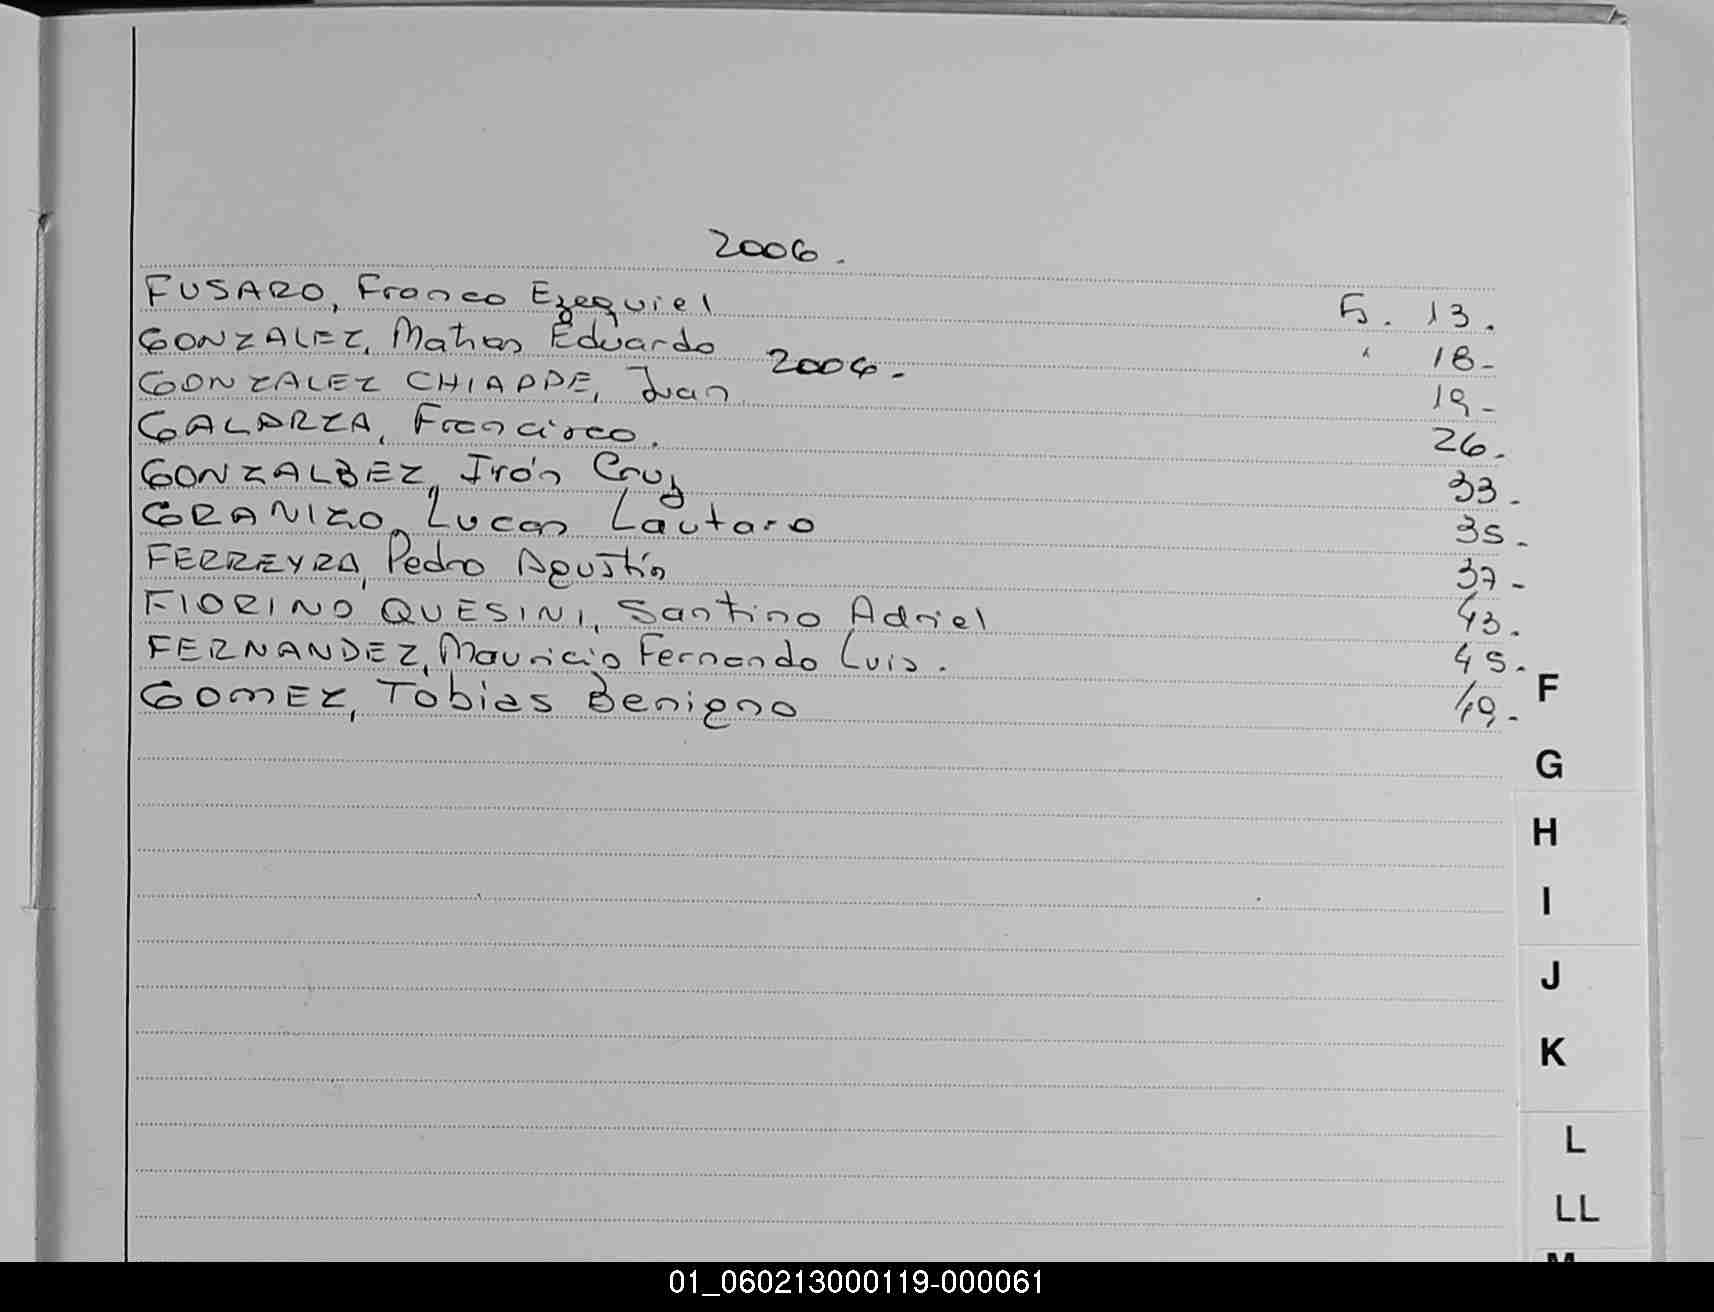 2006.
FUSARO, Franco Ezequiel Fs. 13.
GONZALEZ, Matias Eduardo " 18-
2006.-
GONZALEZ CHIAPPE, Juan 19-
GALARZA, Francisco. 26.
GONZALBEZ, Irón Cruz 33.
GRANIZO, Lucas Lautaro 35.
FERREYRA, Pedro Agustín 37-
FIORINO QUESINI, Santino Adriel 43.
FERNANDEZ, Mauricio Fernando Luis. 45.
GOMEZ, Tobias Benigno 49.
F
G
H
I
J
K
L
LL
M
01_060213000119-000061